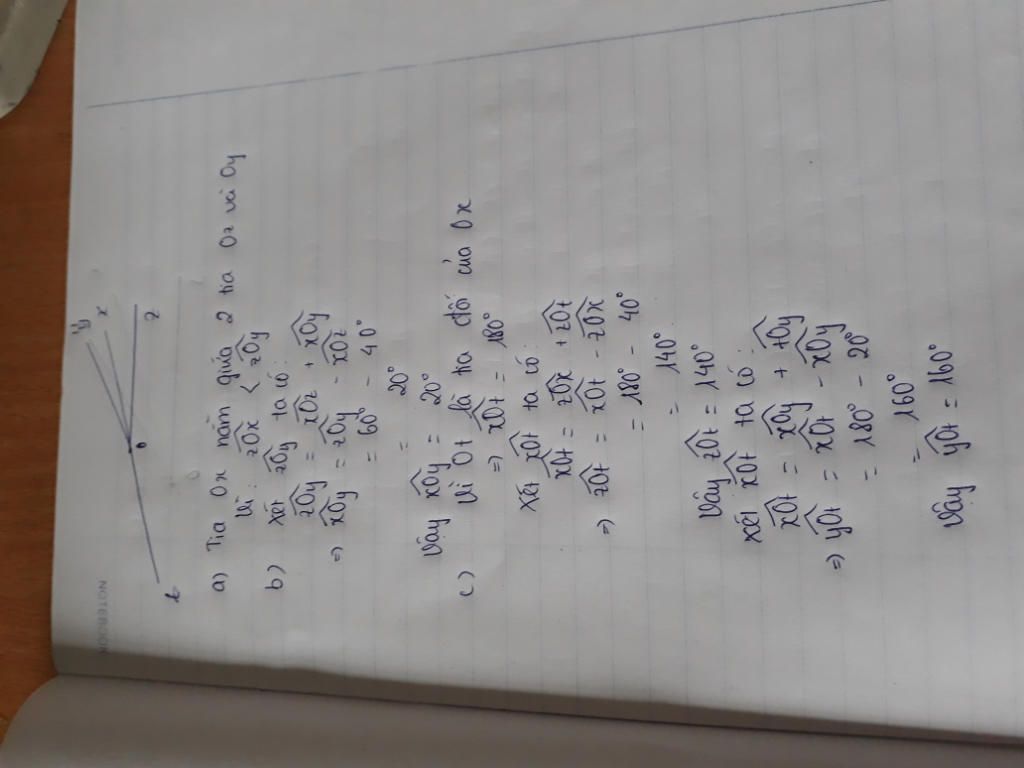 NOTEBOOK
y
x
z
O
t
a) Tia Ox nằm giữa 2 tia Oz và Oy
Vì: zOx < zOy
b) xét zOy ta có:
zOy = xOz + xOy
=> xOy = zOy - xOz
= 60° - 40°
= 20°
Vậy xOy = 20°
c) Vì Ot là tia đối của Ox
=> xOt = 180°
xét xOt ta có:
xOt = zOx + zOt
=> zOt = xOt - zOx
= 180° - 40°
= 140°
Vậy zOt = 140°
xét xOt ta có:
xOt = xOy + tOy
=> yOt = xOt - xOy
= 180° - 20°
= 160°
Vậy yOt = 160°